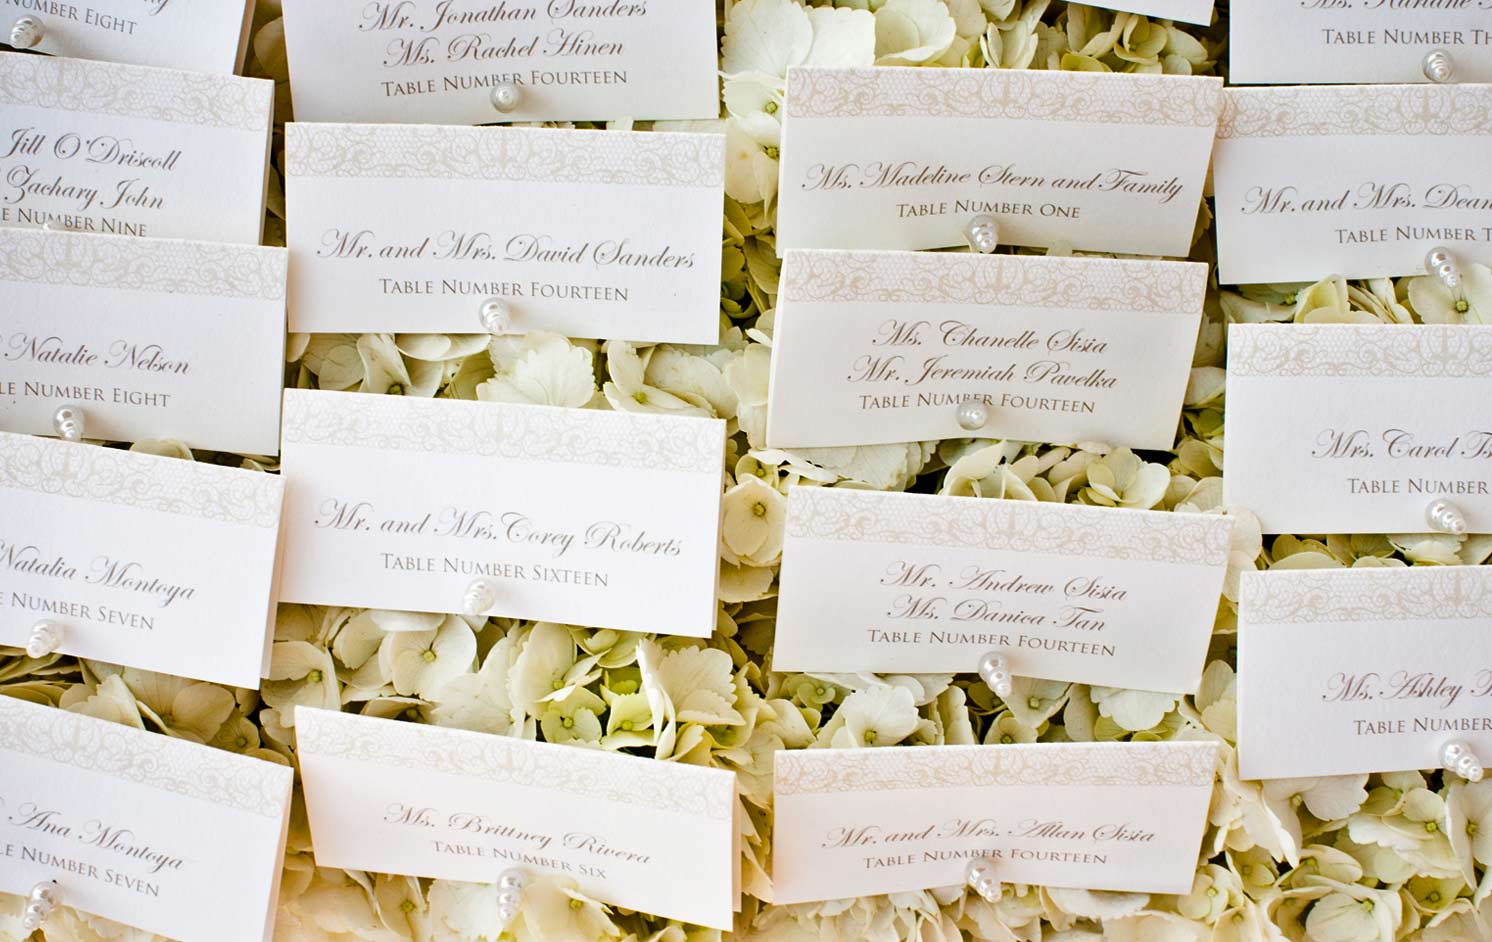 Number Eight
Jill O'Driscoll
Zachary John
Number Nine
Natalie Nelson
Number Eight
Natalia Montoya
Number Seven
Ana Montoya
Number Seven
Mr. Jonathan Sanders
Ms. Rachel Hinen
Table Number Fourteen
Mr. and Mrs. David Sanders
Table Number Fourteen
Mr. and Mrs. Corey Roberts
Table Number Sixteen
Ms. Brittney Rivera
Table Number Six
Ms. Madeline Stern and Family
Table Number One
Ms. Chanelle Sisia
Mr. Jeremiah Pavelka
Table Number Fourteen
Mr. Andrew Sisia
Ms. Danica Tan
Table Number Fourteen
Mr. and Mrs. Allan Sisia
Table Number Fourteen
Ms.
Table Number
Mr. and Mrs. Dean
Table Number
Mrs. Carol
Table Number
Ms. Ashley
Table Number